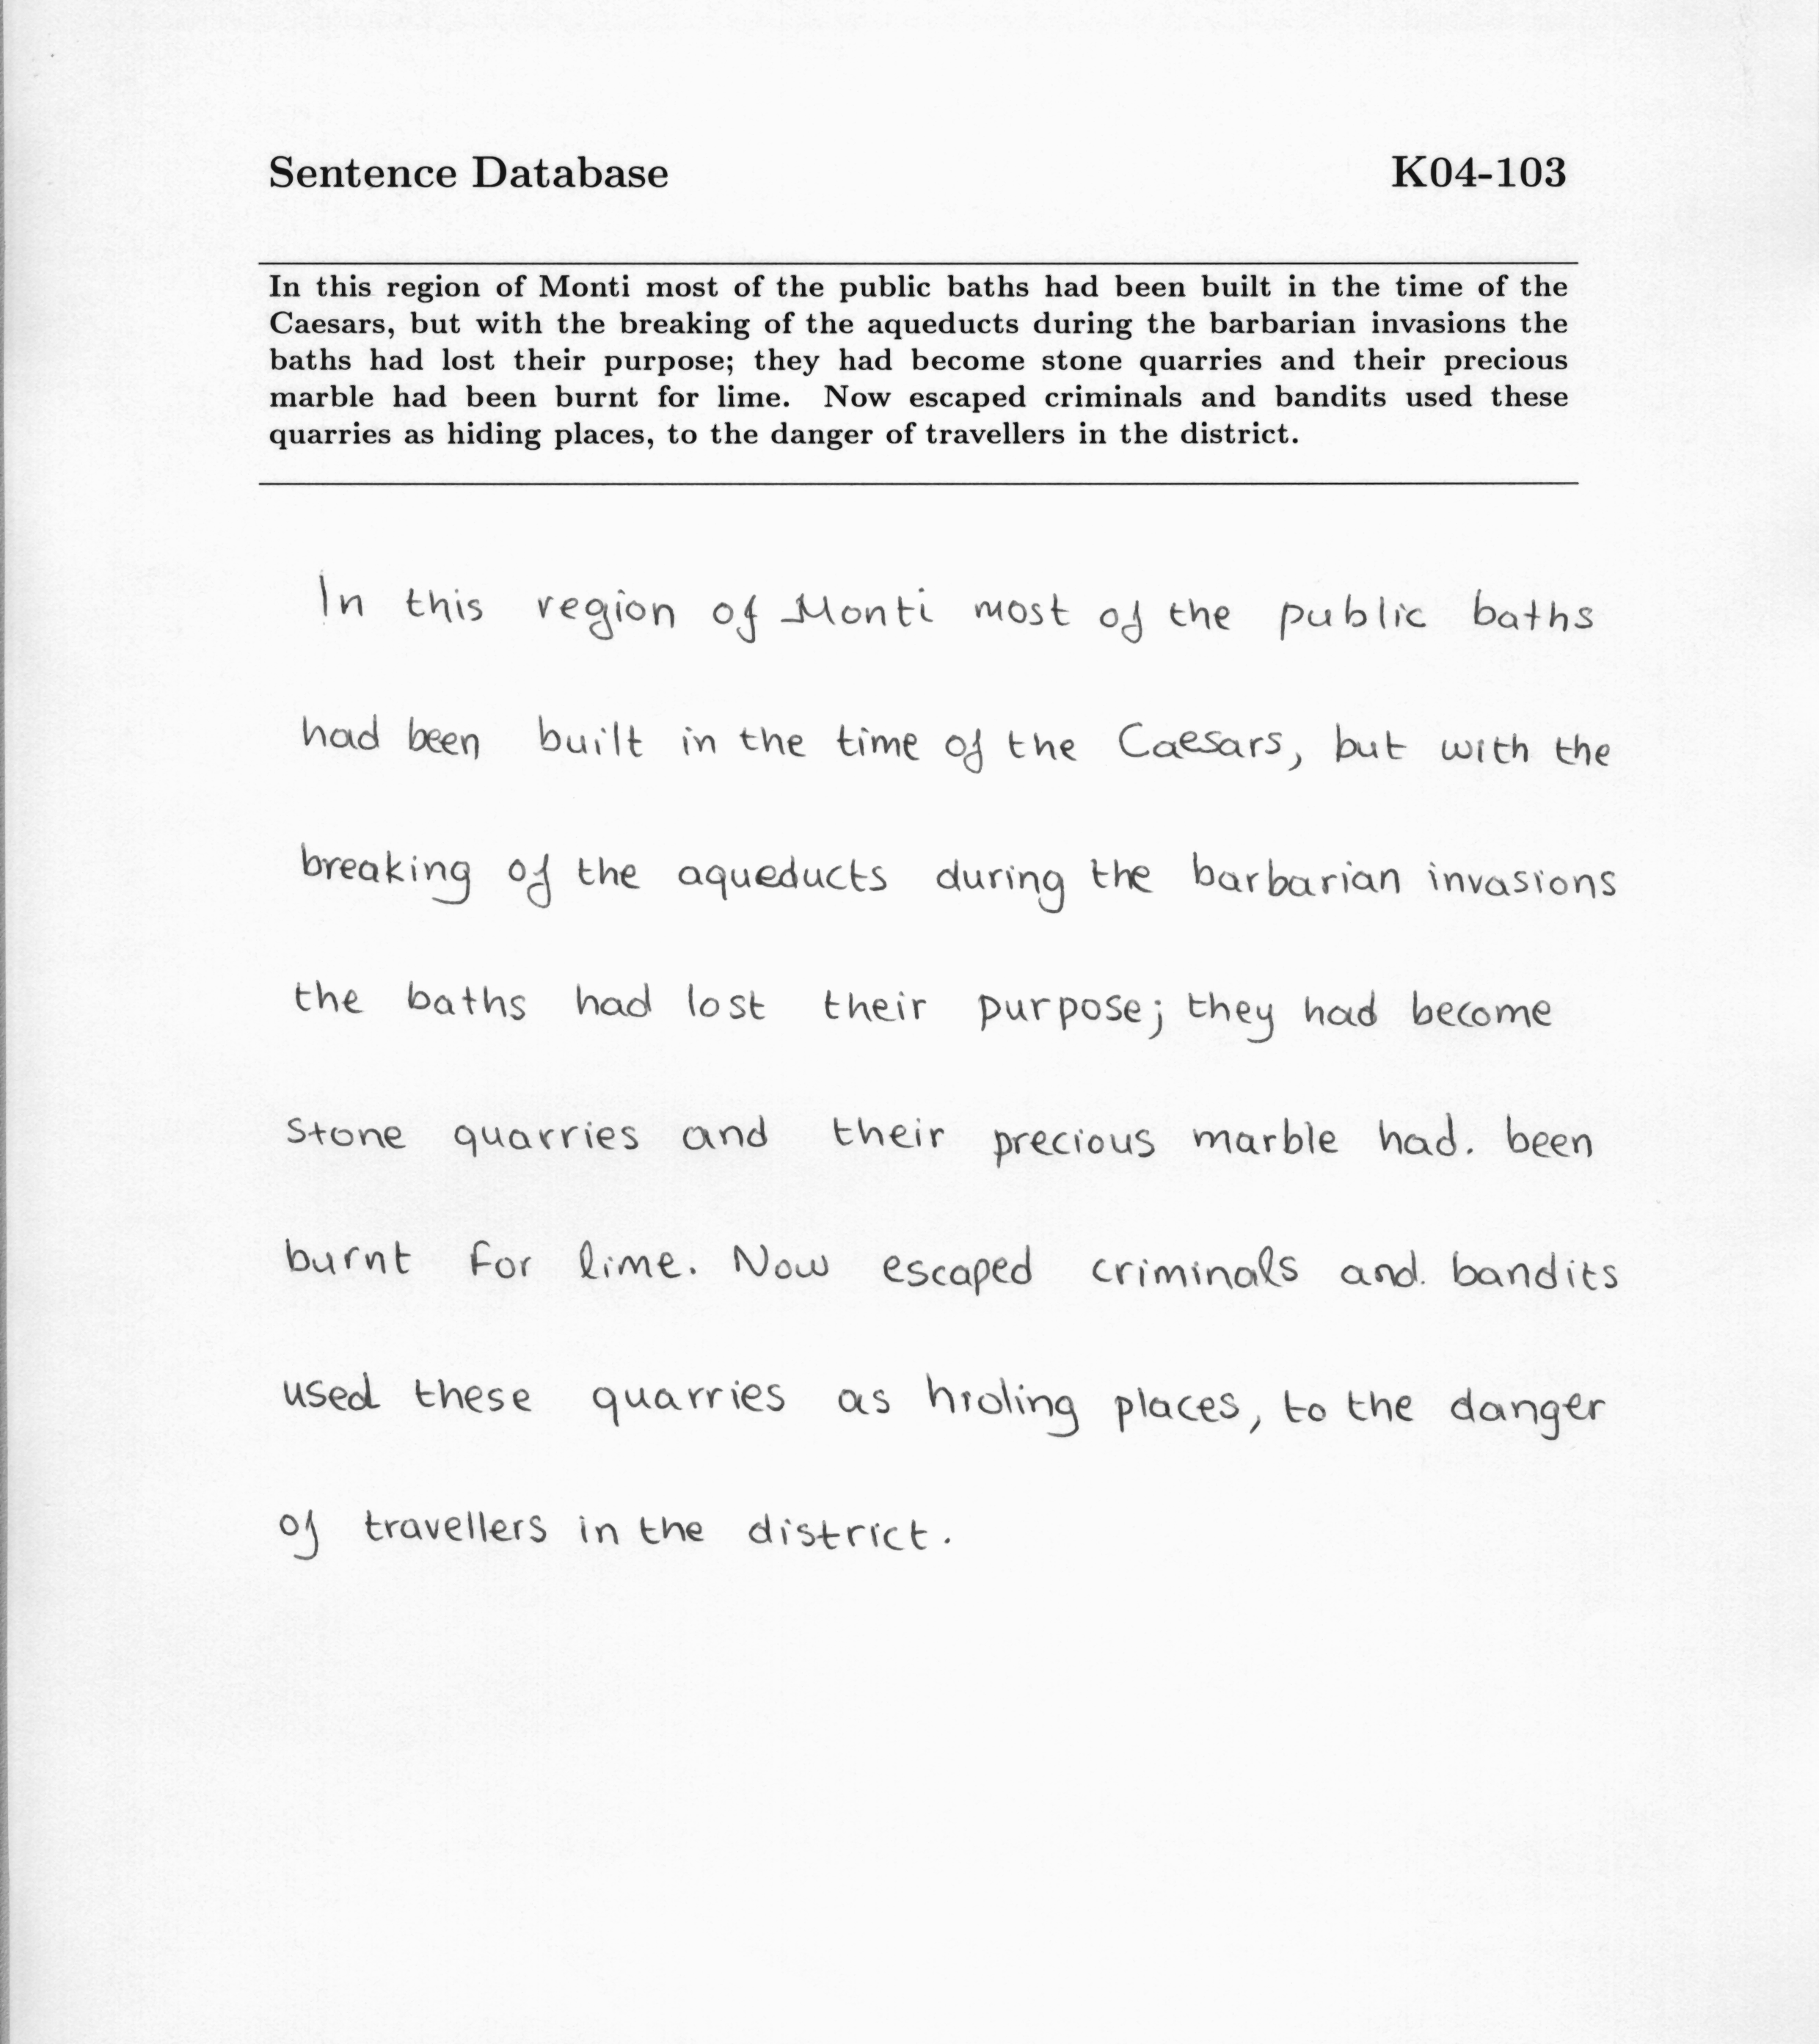 Sentence Database K04-103
In this region of Monti most of the public baths had been built in the time of the
Caesars, but with the breaking of the aqueducts during the barbarian invasions the
baths had lost their purpose; they had become stone quarries and their precious
marble had been burnt for lime. Now escaped criminals and bandits used these
quarries as hiding places, to the danger of travellers in the district.
In this region of Monti most of the public baths
had been built in the time of the Caesars, but with the
breaking of the aqueducts during the barbarian invasions
the baths had lost their purpose; they had become
stone quarries and their precious marble had. been
burnt for lime. Now escaped criminals and. bandits
used these quarries as hiding places, to the danger
of travellers in the district.